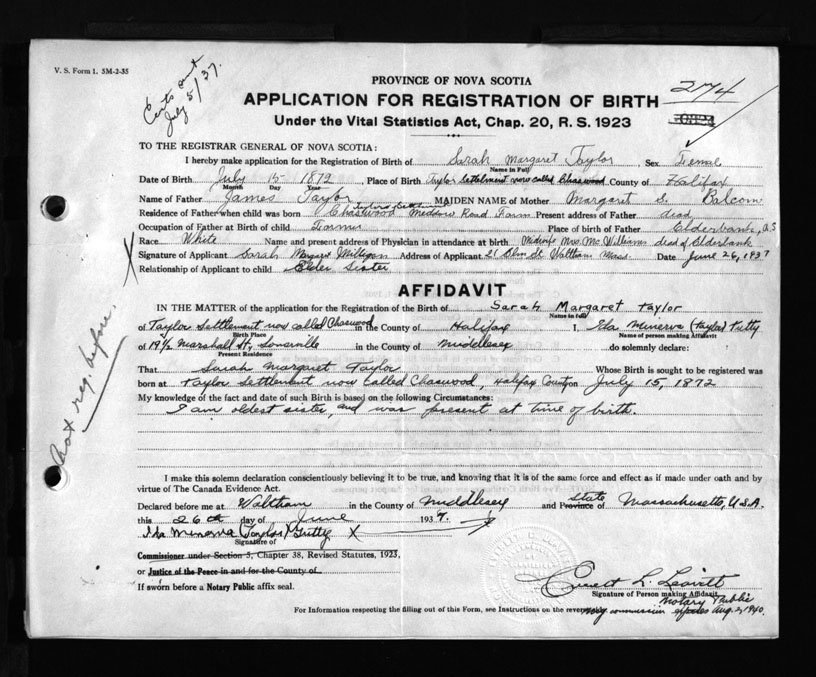 V. S. Form 1. 5M-2-35
Certs sent
July 5/37.
PROVINCE OF NOVA SCOTIA
274
APPLICATION FOR REGISTRATION OF BIRTH
Under the Vital Statistics Act, Chap. 20, R. S. 1923
TO THE REGISTRAR GENERAL OF NOVA SCOTIA:
I hereby make application for the Registration of Birth of Sarah Margaret Taylor Sex Femal
Name in Full
Date of Birth July 15 1872, Place of Birth Taylor Settelment now called Chaswood County of Halifax
Month Day Year
Name of Father James Taylor MAIDEN NAME of Mother Margaret S. Balcom
Residence of Father when child was born Chaswood Meddow Road Farm Present address of Father dead
Occupation of Father at Birth of child Farmer Place of birth of Father Elderbank, N.S
Race White Name and present address of Physician in attendance at birth Midwife Mrs. Mc Williams dead of Elderbank
Signature of Applicant Sarah Margaret Milligan Address of Applicant 21 Elm St. Waltham Mass. Date June 26, 1937
Relationship of Applicant to child Elder Sister
X
Not reg. before.
AFFIDAVIT
IN THE MATTER of the application for the Registration of the Birth of Sarah Margaret Taylor
Name in full
of Taylor Settlement now called Chaswood in the County of Halifax I, Ida Minerva (Taylor) Tutty
Birth Place Name of person making Affidavit
of 19½ Marshall St, Somerville in the County of Middlesex do solemnly declare:
Present Residence
That Sarah Margaret Taylor Whose Birth is sought to be registered was
born at Taylor Settlement now called Chaswood, Halifax County on July 15, 1872
My knowledge of the fact and date of such Birth is based on the following Circumstances:
I am oldest sister, and was present at time of birth.
I make this solemn declaration conscientiously believing it to be true, and knowing that it is of the same force and effect as if made under oath and by
virtue of The Canada Evidence Act.
Declared before me at Waltham in the County of Middlesex and State Province of Massachusetts, U.S.A.
this 26th day of June 1937.
Ida Minerva (Taylor) Tutty X
Signature of
Commissioner under Section 5, Chapter 38, Revised Statutes, 1923,
or Justice of the Peace in and for the County of
If sworn before a Notary Public affix seal.
Ernest L. Leavitt
Signature of Person making Affidavit
Notary Public
For Information respecting the filling out of this Form, see Instructions on the reverse
My commission expires Aug. 2, 1940.